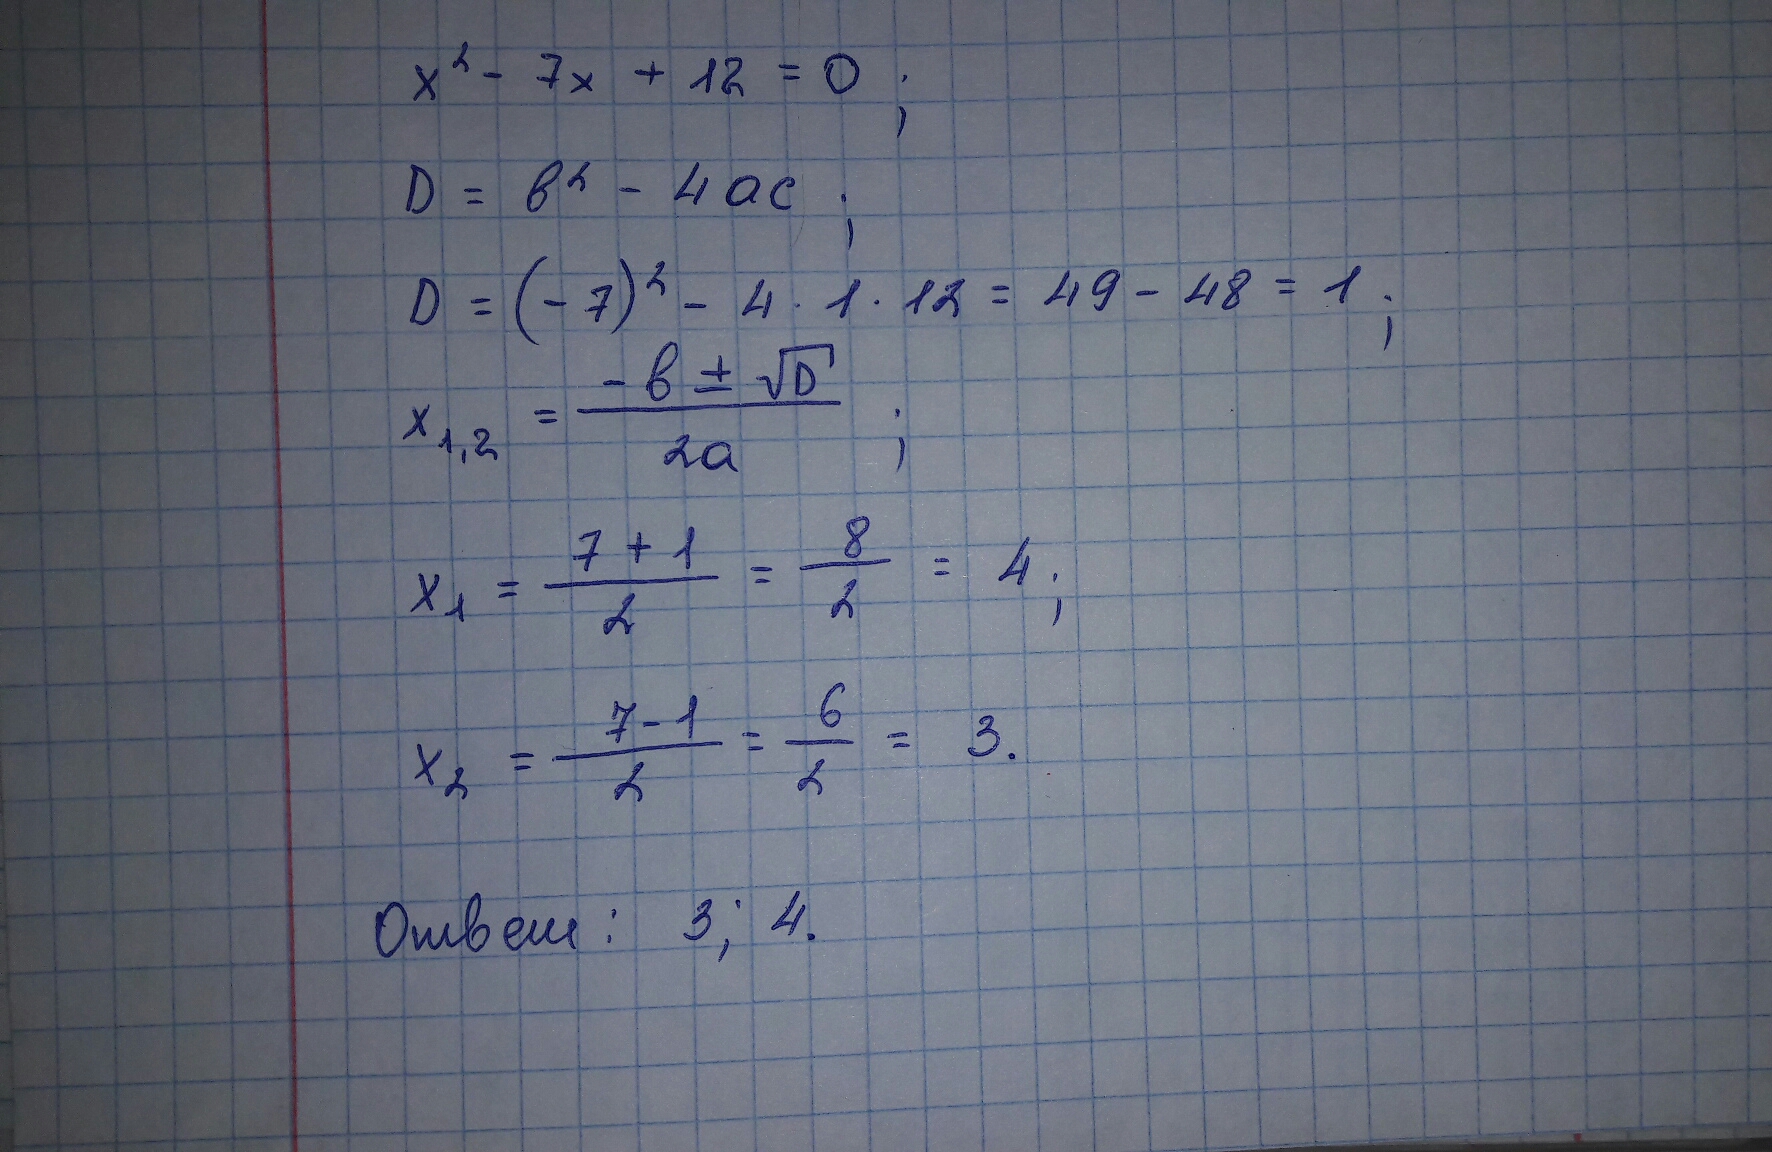 x² - 7x + 12 = 0;
D = b² - 4ac;
D = (-7)² - 4 · 1 · 12 = 49 - 48 = 1;
x₁,₂ = (-b ± √D) / 2a;
x₁ = (7 + 1) / 2 = 8 / 2 = 4;
x₂ = (7 - 1) / 2 = 6 / 2 = 3.
Ответ: 3; 4.